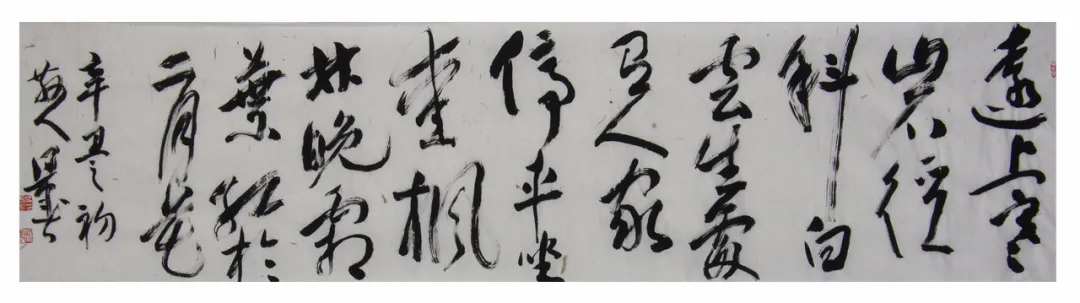 遠上寒
山石徑
斜白
雲生處
有人家
停車坐
愛楓
林晚霜
葉紅於
二月花
辛丑之初
人